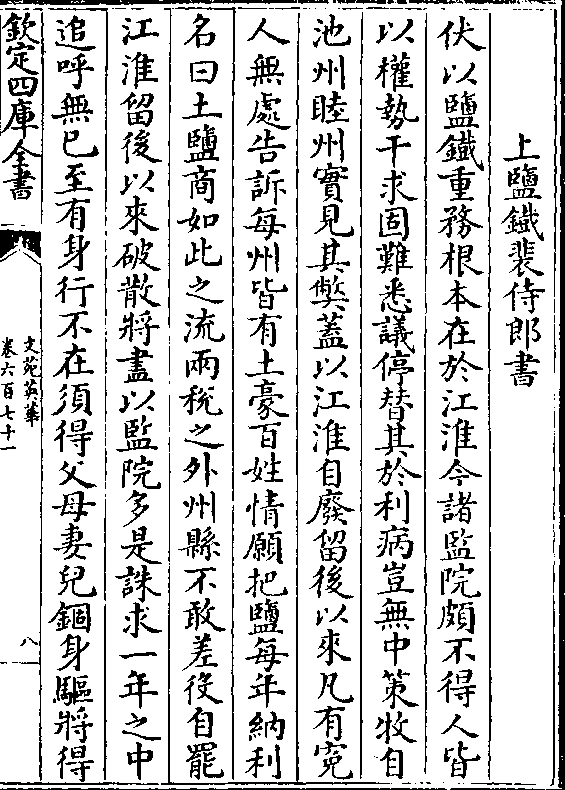 上鹽鐵裴侍郎書
伏以鹽鐵重務根本在於江淮今諸監院頗不得人皆
以權勢干求固難悉議停替其於利病豈無中策牧自
池州睦州實見其弊蓋以江淮自廢留後以來凡有寃
人無處告訴每州皆有土豪百姓情願把鹽每年納利
名曰土鹽商如此之流兩稅之外州縣不敢差役自罷
江淮留後以來破散將盡以監院多是誅求一年之中
追呼無已至有身行不在須得父母妻兒錮身驅將得
欽定四庫全書
文苑英華
卷六百七十一
八